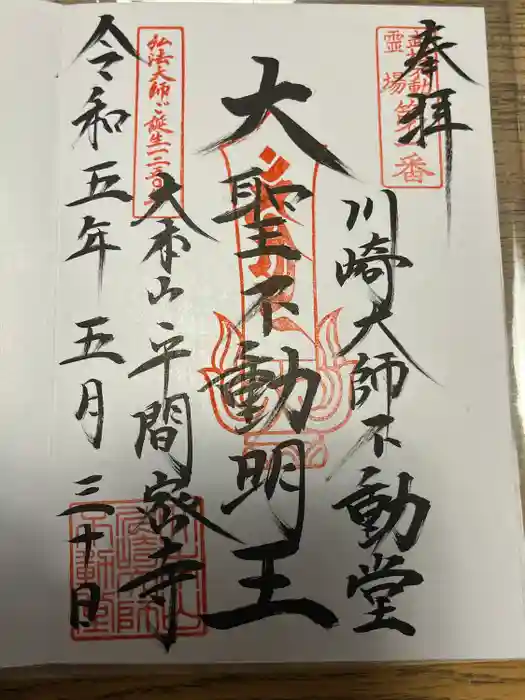 奉拝
霊場第一番
川崎大師不動堂
大聖不動明王
弘法大師ご誕生一二五〇年
大本山平間寺
令和五年五月三十日